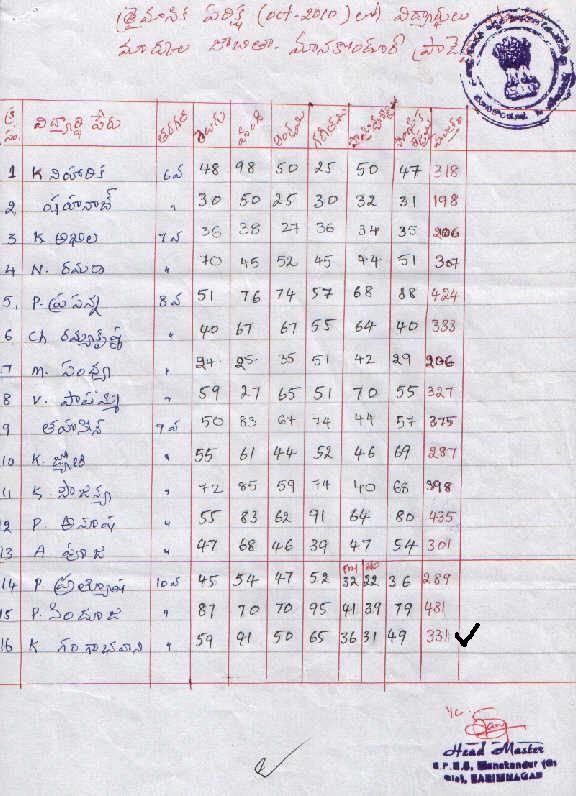 త్రైమాసిక పరీక్ష (oct-2010) లో విద్యార్థులు
మార్కుల జాబితా - మానకొండూర్
క్ర సం. విద్యార్థి పేరు తరగతి తెలుగు హింది ఆంగ్లము గణితము
1 K నిహారిక 6వ 48 98 50 25 50 47 318
2 షహనాజ్ " 30 50 25 30 32 31 198
3 K అఖిల 7వ 36 38 27 36 34 35 206
4 N. రమాదే " 70 45 52 45 44 51 307
5. P. ప్రసన్న 8వ 51 76 74 57 68 88 424
6 Ch రమ్యకృష్ణ " 40 67 67 55 64 40 333
7 M. సంధ్యా " 24 25 35 51 42 29 206
8 V. పాపమ్మ " 59 27 65 51 70 55 327
9 తహసీన్ 9వ 50 83 67 74 44 57 375
10 K. జ్యోతి " 55 61 44 52 46 69 287
11 K. సౌజన్య " 72 85 59 74 40 68 398
12 P. అనూష " 55 83 62 91 64 80 435
13 A పూజ " 47 68 46 39 47 54 301
14 P ప్రత్యూష 10వ 45 54 47 52 32 22 36 289
15 P. సింధూజ " 87 70 70 95 41 39 79 481
16 K గంగాభవాని " 59 91 50 65 36 31 49 331
I/c.
Head Master
Manakondur
Dist. KARIMNAGAR